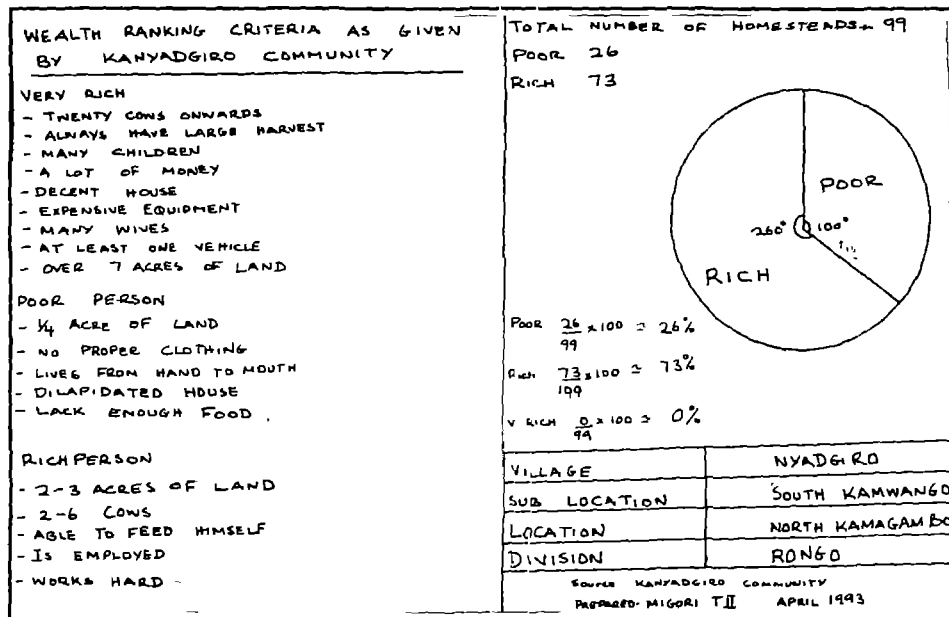 WEALTH RANKING CRITERIA AS GIVEN
BY KANYADGIRO COMMUNITY
VERY RICH
- TWENTY COWS ONWARDS
- ALWAYS HAVE LARGE HARVEST
- MANY CHILDREN
- A LOT OF MONEY
- DECENT HOUSE
- EXPENSIVE EQUIPMENT
- MANY WIVES
- AT LEAST ONE VEHICLE
- OVER 7 ACRES OF LAND
POOR PERSON
- ¼ ACRE OF LAND
- NO PROPER CLOTHING
- LIVES FROM HAND TO MOUTH
- DILAPIDATED HOUSE
- LACK ENOUGH FOOD.
RICH PERSON
- 2-3 ACRES OF LAND
- 2-6 COWS
- ABLE TO FEED HIMSELF
- IS EMPLOYED
- WORKS HARD -
TOTAL NUMBER OF HOMESTEADS - 99
POOR 26
RICH 73
POOR
260° 100°
RICH
POOR 26/99 x 100 = 26%
RICH 73/199 x 100 = 73%
V RICH 0/99 x 100 = 0%
VILLAGE NYADGIRO
SUB LOCATION SOUTH KAMWANGO
LOCATION NORTH KAMAGAMBO
DIVISION RONGO
SOURCE KANYADGIRO COMMUNITY
PREPARED- MIGORI TII APRIL 1993